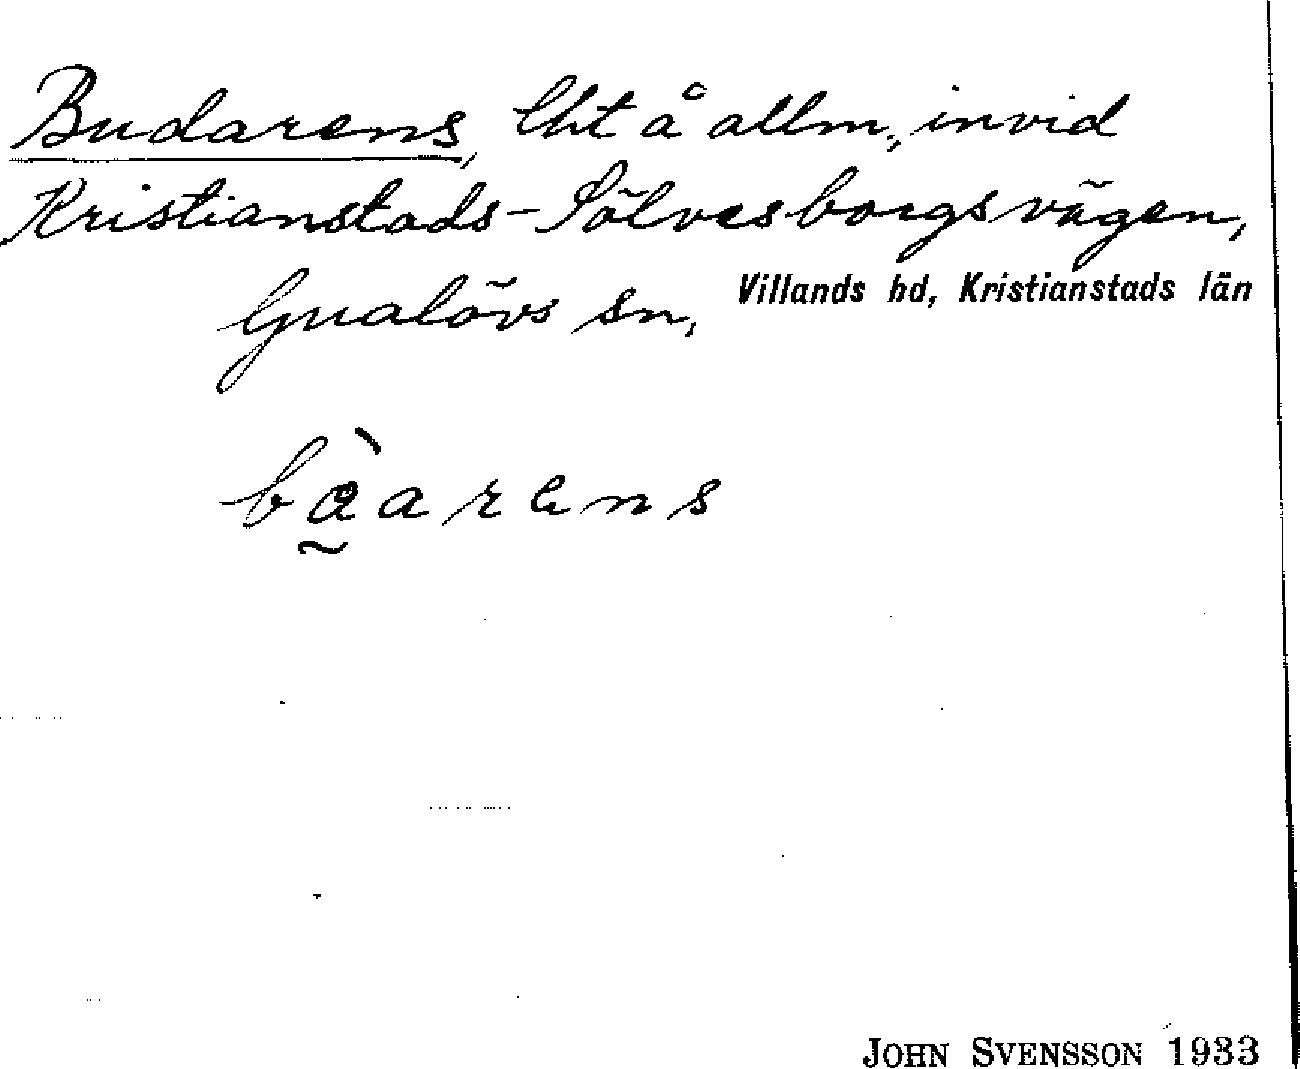 Budarens, lht å allm., invid
Kristianstads-Sölvesborgsvägen,
Gualövs sn, Villands hd, Kristianstads län
JOHN SVENSSON 1933